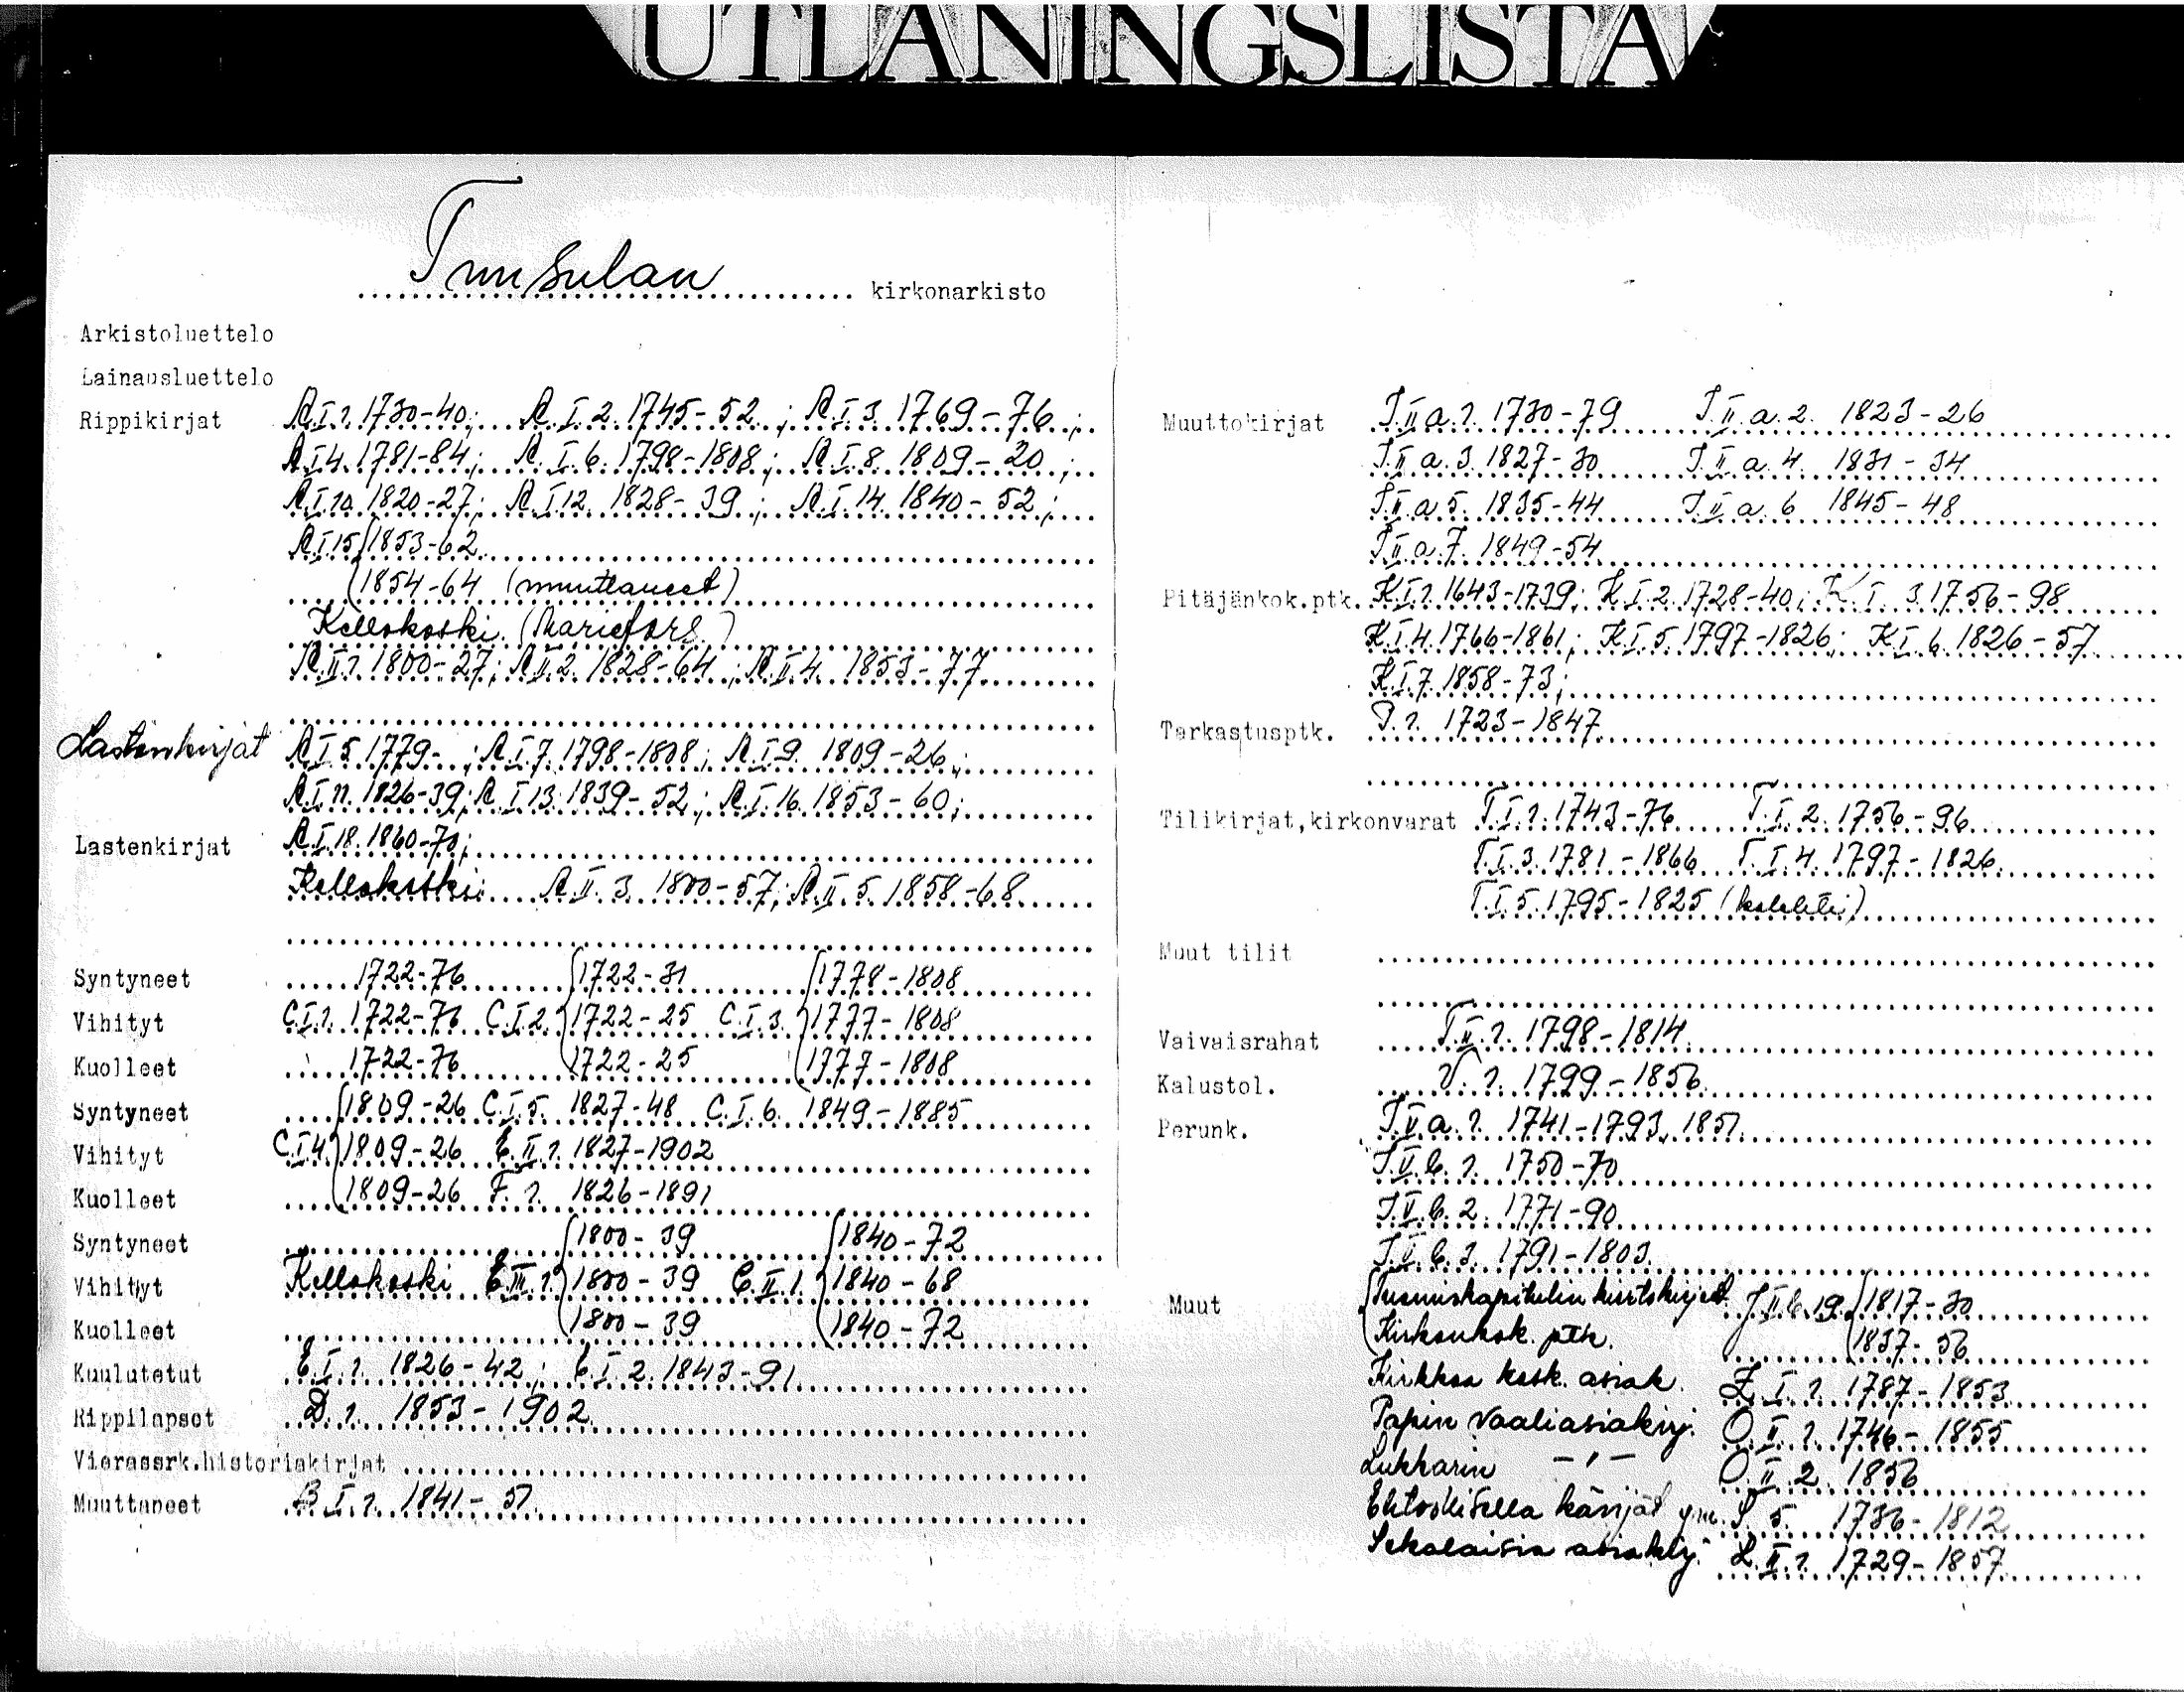 UTLÅNINGSLISTA
Tuusulan kirkonarkisto
Arkistoluettelo
Lainausluettelo
Rippikirjat A.I.1. 1730-40; A.I.2. 1745-52; A.I.3. 1769-76;
A.I.4. 1781-84; A.I.6. 1798-1808; A.I.8. 1809-20;
A.I.10. 1820-27; A.I.12. 1828-39; A.I.14. 1840-52;
A.I.15 1853-62
1854-64 (muuttaneet)
Kellokoski (Mariefors)
A.II.1. 1800-27; A.II.2. 1828-64; A.II.4. 1853-77
Lastenkirjat A.I.5. 1779- ; A.I.7. 1798-1808; A.I.9. 1809-26;
A.I.11. 1826-39; A.I.13. 1839-52; A.I.16. 1853-60;
Lastenkirjat A.I.18. 1860-70;
Kellokoski: A.II.3. 1800-57; A.II.5. 1858-68
Syntyneet 1722-76 1722-31 1778-1808
Vihityt C.I.1. 1722-76 C.I.2. 1722-25 C.I.3. 1777-1808
Kuolleet 1722-76 1722-25 1777-1808
Syntyneet 1809-26 C.I.5. 1827-48 C.I.6. 1849-1885
Vihityt C.I.4. 1809-26 E.II.1. 1827-1902
Kuolleet 1809-26 F.1. 1826-1891
Syntyneet 1800-39 1840-72
Vihityt Kellokoski C.III.1. 1800-39 C.II.1. 1840-68
Kuolleet 1800-39 1840-72
Kuulutetut E.I.1. 1826-42; E.I.2. 1843-91
Rippilapset D.1. 1853-1902
Vierassrk.historiakirjat
Muuttaneet B.I.1. 1841-51
Muuttokirjat J.II.a.1. 1730-79 J.II.a.2. 1823-26
J.II.a.3. 1827-30 J.II.a.4. 1831-34
J.II.a.5. 1835-44 J.II.a.6 1845-48
J.II.a.7. 1849-54
Pitäjänkok.ptk. K.I.1. 1643-1739; K.I.2. 1728-40; K.I.3. 1756-98
K.I.4. 1766-1861; K.I.5. 1797-1826; K.I.6. 1826-57
K.I.7. 1858-73;
Tarkastusptk. P.1. 1723-1847
Tilikirjat,kirkonvarat T.I.1. 1743-76 T.I.2. 1756-96
T.I.3. 1781-1866 T.I.4. 1797-1826
T.I.5. 1795-1825 (kolehti)
Muut tilit
Vaivaisrahat T.II.1. 1798-1814
Kalustol. V.1. 1799-1856
Perunk. J.V.a.1. 1741-1793, 1851
J.V.b.1. 1750-70
J.V.b.2. 1771-90
J.V.b.3. 1791-1803
Muut Tuomiokapitulin kiertokirjeet J.II.b.19. 1817-30
Kirkonkok. ptk. 1837-56
Kirkkoa kosk. asiak. Z.I.1. 1787-1853
Papin vaaliasiakirj. O.II.1. 1746-1855
Lukkarin -"- O.II.2. 1856
Ehtoollisella kävijät ym. S.5. 1736-1812
Sekalaisia asiakirj. L.II.1. 1729-1857